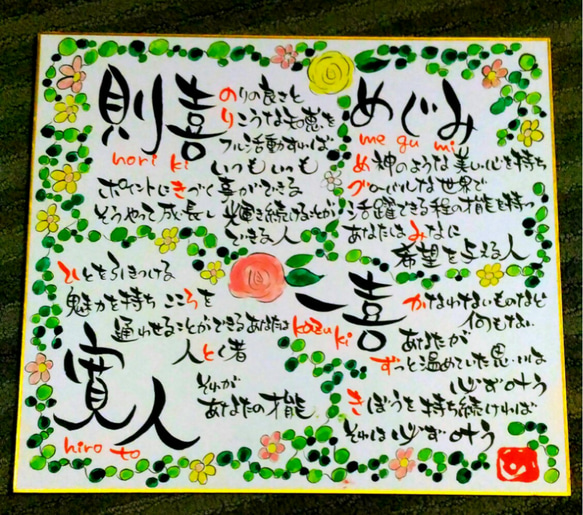 則喜
nori ki
のりの良さと
りこうな知恵を
フル活動すれば
いつもいつも
ポイントにきづく事ができる
そうやって成長し輝き続けることが
できる人
めぐみ
me gu mi
め神のような美しい心を持ち
グローバルな世界で
活躍できる程の才能を持つ
あなたはみなに
希望を与える人
寛人
hiro to
ひとをひきつける
魅力を持ちこころを
通わせることができるあなたは
人とく者
それが
あなたの才能
一喜
kazu ki
かなわないものなど
何もない
あなたが
ずっと温めていた思いは
必ず叶う
きぼうを持ち続ければ
それは必ず叶う